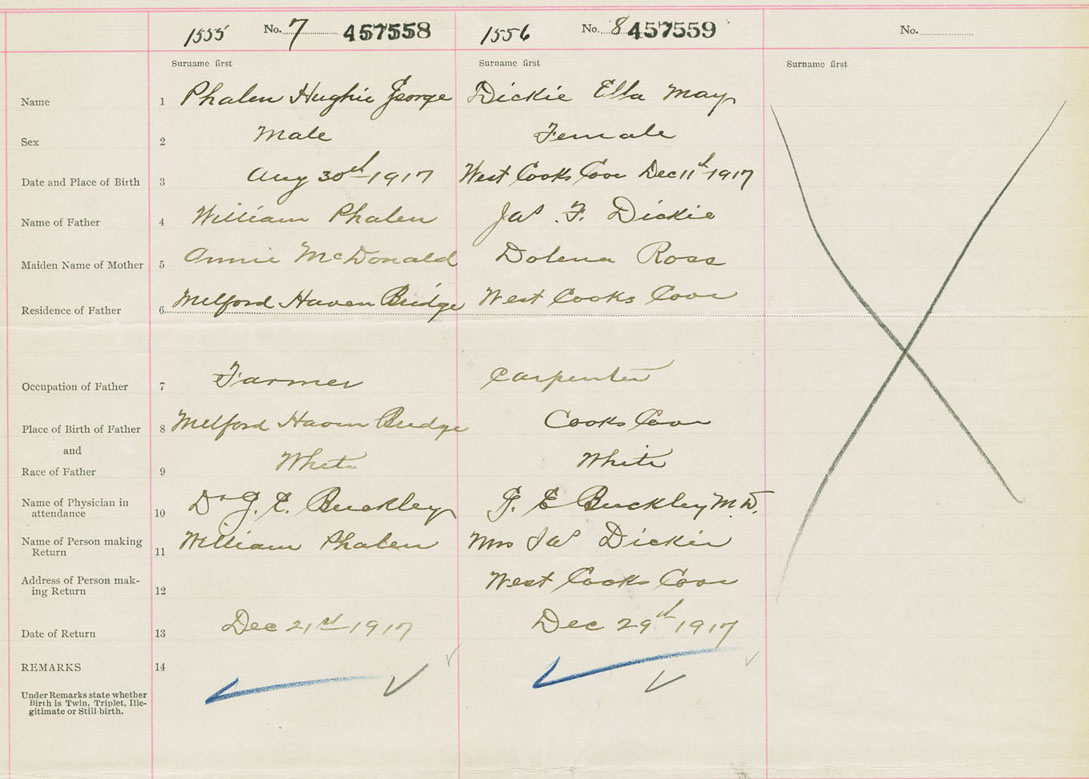 1555 No. 7 457558 1556 No. 8 457559 No.
Surname first Surname first Surname first
Name 1 Phalen Hughie George Dickie Ella May
Sex 2 Male Female
Date and Place of Birth 3 Aug 30th 1917 West Cooks Cove Dec 11th 1917
Name of Father 4 William Phalen Jas. F. Dickie
Maiden Name of Mother 5 Annie McDonald Dolena Ross
Residence of Father 6 Milford Haven Bridge West Cooks Cove
Occupation of Father 7 Farmer Carpenter
Place of Birth of Father 8 Milford Haven Bridge Cooks Cove
and
Race of Father 9 White White
Name of Physician in
attendance 10 Dr J. E. Buckley J. E. Buckley M.D.
Name of Person making
Return 11 William Phalen Mrs Jas Dickie
Address of Person mak-
ing Return 12 West Cooks Cove
Date of Return 13 Dec 21st 1917 Dec 29th 1917
REMARKS 14
Under Remarks state whether
Birth is Twin, Triplet, Ille-
gitimate or Still-birth.